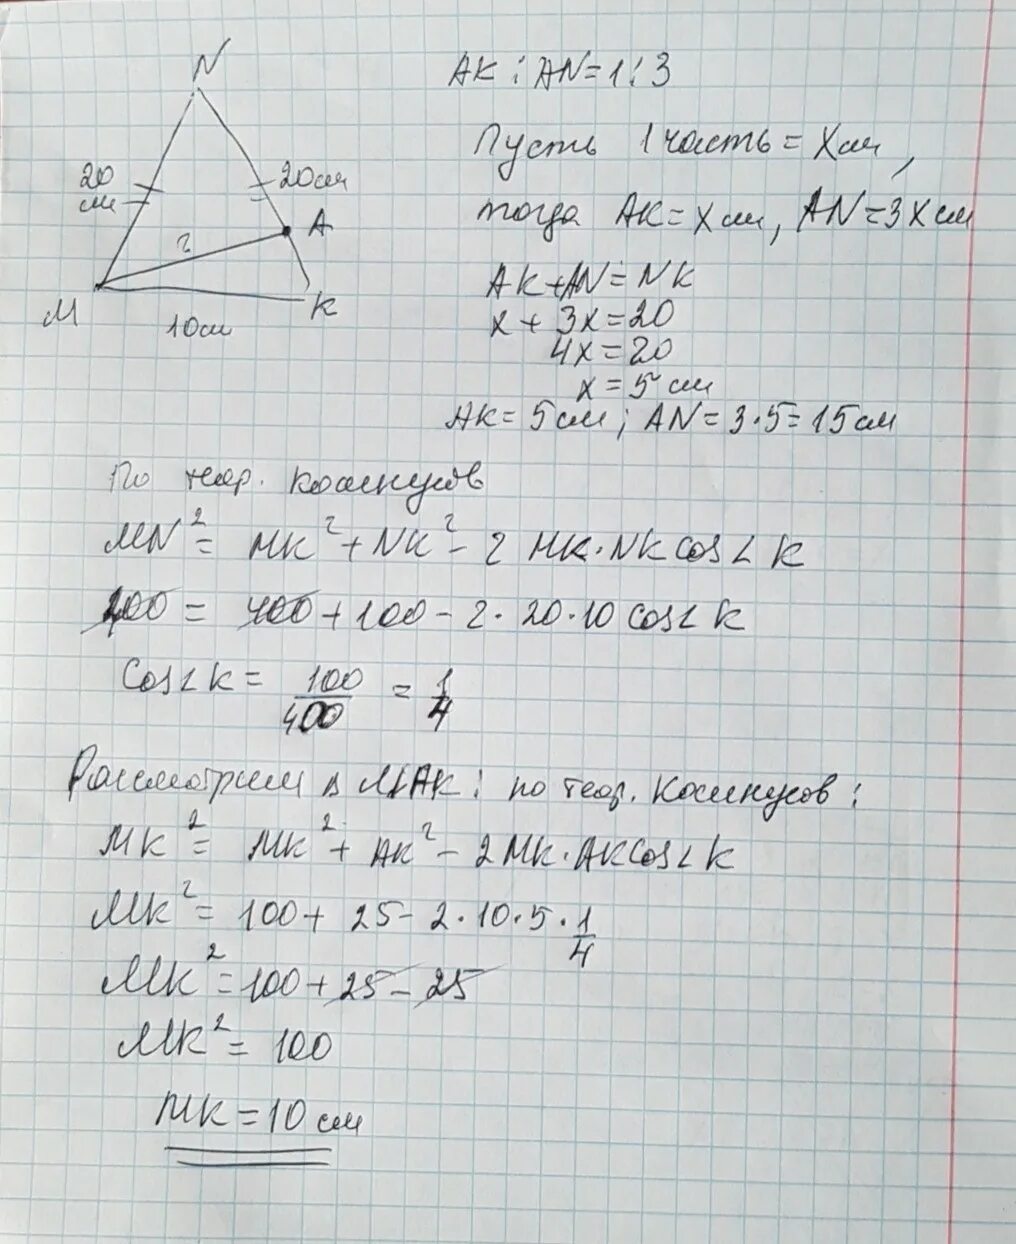 N
20 см
20см
A
?
M
K
10см
AK : AN = 1 : 3
Пусть 1 часть = X см,
тогда AK = X см, AN = 3X см
AK + AN = NK
x + 3x = 20
4x = 20
x = 5 см
AK = 5 см ; AN = 3·5 = 15 см
По теор. косинусов
MN² = MK² + NK² - 2 MK·NK cos∠K
400 = 400 + 100 - 2·20·10 cos∠K
Cos∠K = 100/400 = 1/4
Рассмотрим Δ MAK : по теор. Косинусов :
MK² = MK² + AK² - 2MK·AK cos∠K
MK² = 100 + 25 - 2·10·5·1/4
MK² = 100 + 25 - 25
MK² = 100
MK = 10 см